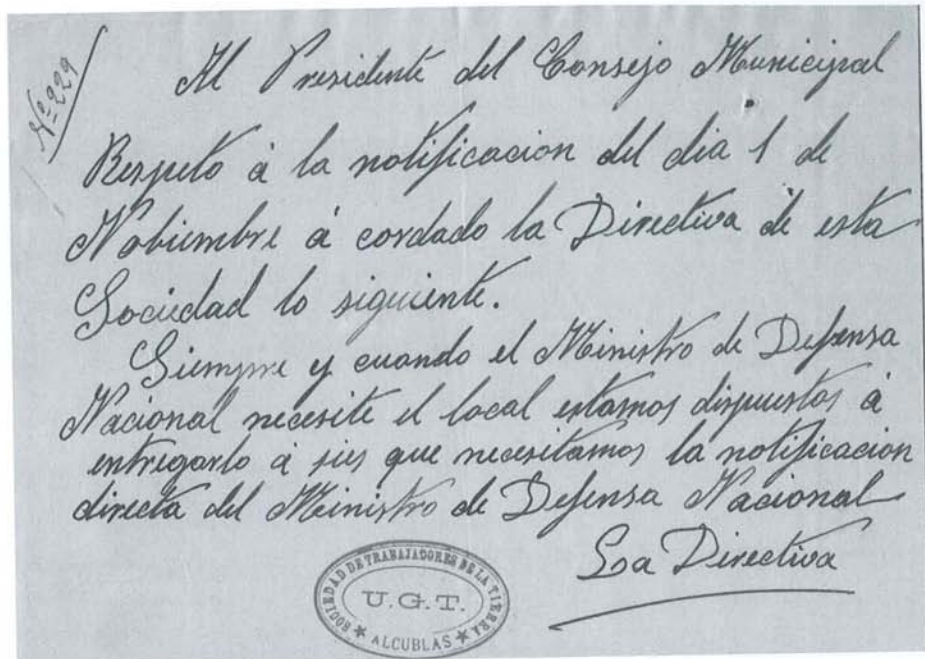 Nº 229
Al Presidente del Consejo Municipal
Respeto á la notificacion del dia 1 de
Nobiembre á cordado la Directiva de esta
Sociedad lo siguiente.
Siempre y cuando el Ministro de Defensa
Nacional necesite el local estamos dispuestos á
entregarlo á sies que necesitamos la notificacion
directa del Ministro de Defensa Nacional
La Directiva
SOCIEDAD DE TRABAJADORES DE LA TIERRA
U.G.T.
★ ALCUBLAS ★